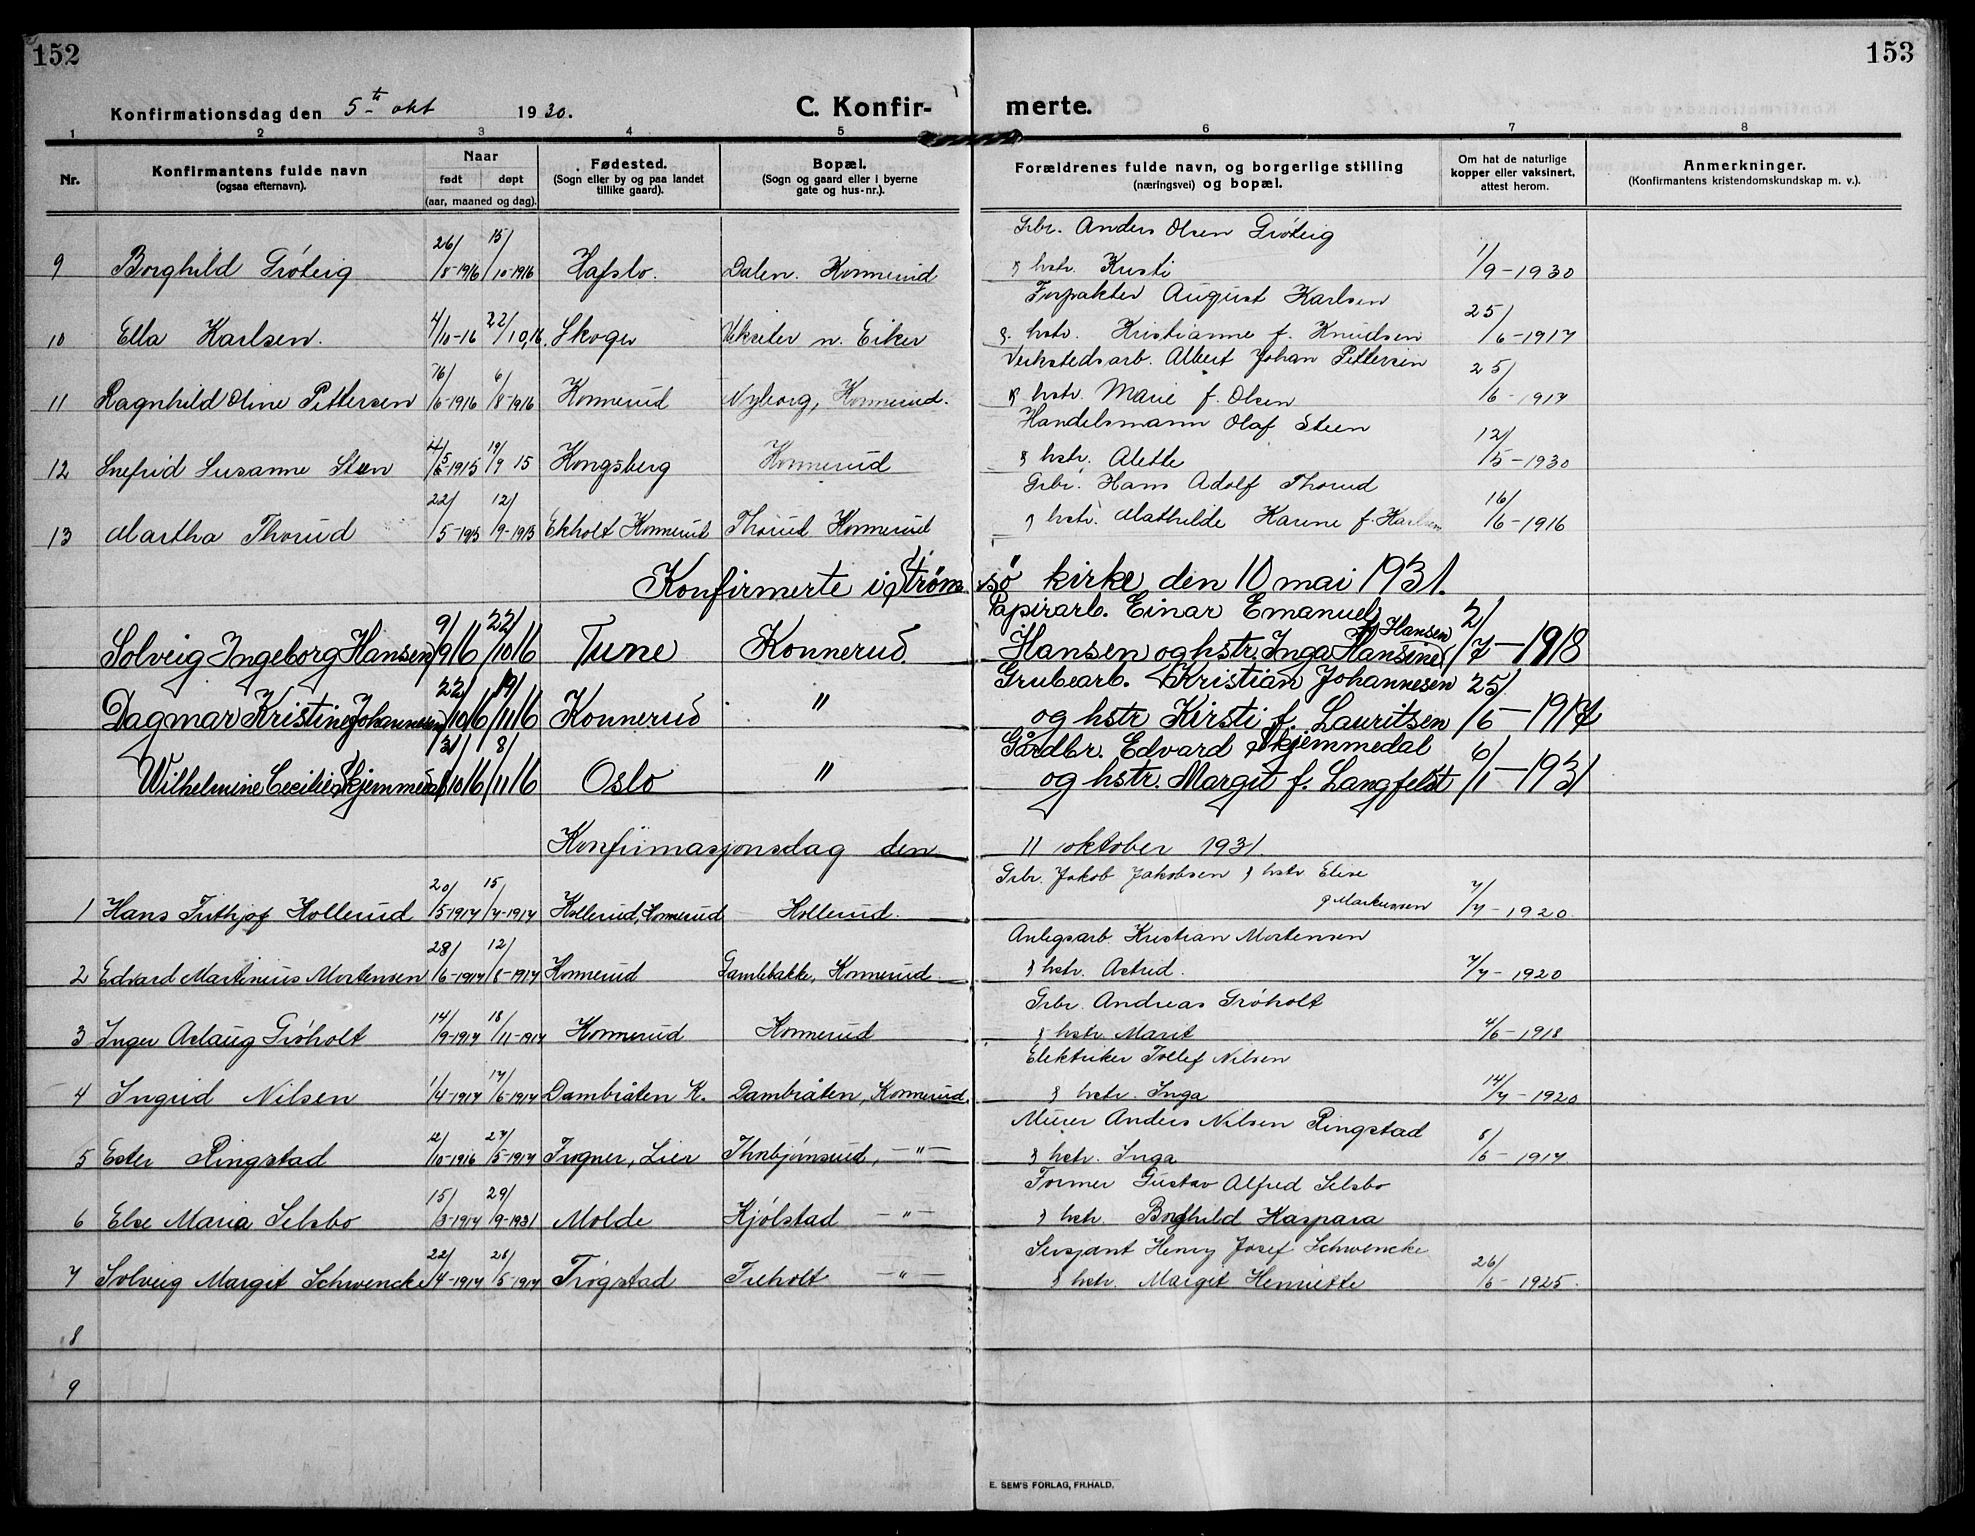 152
153
Konfirmationsdag den 5te okt 1930.
C. Konfir-
merte.
1 2 3 4 5 6 7 8
Nr.
Konfirmantens fulde navn
(ogsaa efternavn).
Naar
født døpt
(aar, maaned og dag).
Fødested.
(Sogn eller by og paa landet
tillike gaard).
Bopæl.
(Sogn og gaard eller i byerne
gate og hus-nr.).
Forældrenes fulde navn, og borgerlige stilling
(næringsvei) og bopæl.
Om hat de naturlige
kopper eller vaksinert,
attest herom.
Anmerkninger.
(Konfirmantens kristendomskundskap m. v.).
Grbr. Anders Olsen Grøteig
9 Borghild Grøteig 26/8-1916 15/10-1916 Hafslo. Dalen. Konnerud & hstr. Kristi 1/9-1930
Forpakter August Karlsen
10 Ella Karlsen. 4/10-16 22/10,16. Skoger Vekseter n. Eiker &. hstr. Kristianne f. Knudsen 25/6-1917
Verkstedsarb. Albert Johan Pettersen
11 Ragnhild Oline Pettersen 16/6-1916 6/8-1916 Konnerud Nyborg, Konnerud. & hstr. Marie f. Olsen 25/6-1917
Handelsmann Olaf Steen
12 Snefrid Susanne Steen 1915 19/9 15 Kongsberg Konnerud & hstr. Alette 12/5-1930
Grbr. Hans Adolf Thorud
13 Martha Thorud 22/5-1915 12/9-1915 Ekholt Konnerud Thorud Konnerud & hstr. Mathilde Karine f. Karlsen 16/6-1916
Konfirmerte i Strømsø kirke den 10 mai 1931.
Papirarb. Einar Emanuel
Solveig Ingeborg Hansen 9/9 16 22/10 16 Tune Konnerud Hansen og hstr. Inga Hansine f. Hansen 2/7-1918
Grubearb. Kristian Johannesen
Dagmar Kristine Johannesen 22/10 16 19/11 16 Konnerud " og hstr Kirsti f. Lauritsen 25/6-1917
Gårdbr. Edvard Skjemmedal
Wilhelmine Cecilie Skjemmedal 31/10 16 8/11 16 Oslo " og hstr. Margit f. Langfeldt 6/1-1931
Konfirmasjonsdag den 11 oktober 1931
Grbr. Jakob Jakobsen & hstr Elise
1 Hans Frithjof Kollerud 20/5-1917 15/7-1917 Kollerud, Konnerud Kollerud. f Markussen 7/7-1920
Anlegsarb. Kristian Mortensen
2 Edvard Martinius Mortensen 28/6-1917 12/8-1917 Konnerud Gamlebakke, Konnerud & hstr. Astrid. 7/7-1920
Grbr. Andreas Grøholt
3 Inger Aslaug Grøholt 14/9-1917 18/11-1917 Konnerud Konnerud & hstr. Marit 4/6-1918
Elektriker Tollef Nilsen
4 Ingrid Nilsen 1/4-1917 17/6-1917 Dambråten K. Dambråten, Konnerud. & hstr. Inga 14/7-1920
Murer Anders Nilsen Ringstad
5 Ester Ringstad 1916 27/5-1917 Frogner, Lier Thorbjørnsrud, -"- & hstr. Inga 8/6-1917
Former Gustav Alfred Selsbo
6 Else Maria Selsbo 15/3-1917 29/9-1931 Molde Kjølstad -"- & hstr. Borghild Kaspara
Sersjant Henry Josef Schwencke
7 Solveig Margit Schwencke 22/4-1917 28/5-1917 Trøgstad Treholt -"- & hstr. Margit Henriette 26/6-1925.
8
9
E. SEM'S FORLAG, FR.HALD.